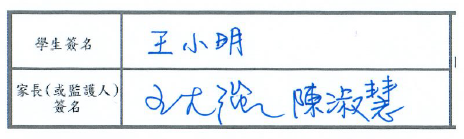 學生簽名 王小明
家長(或監護人)
簽名 王大強 陳淑慧